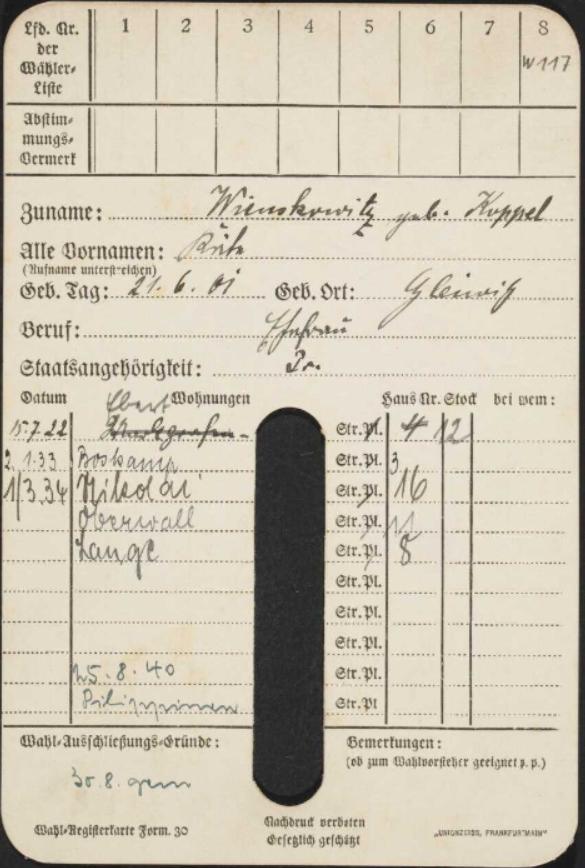 Lfd. Nr. der Wähler-Liste 1 2 3 4 5 6 7 8
W 117
Abstimmungs-Vermerk
Zuname: Wienskowitz geb. Koppel
Alle Vornamen: Käte
(Rufname unterstreichen)
Geb. Tag: 21. 6. 01 Geb. Ort: Gleiwitz
Beruf: Ehefrau
Staatsangehörigkeit: Pr.
Datum Wohnungen Haus Nr. Stock bei wem:
Ebert
15.7.22 Markgrafen- Str. Pl. 4 12
2.1.33 Boskamp Str. Pl. 3
1/3.34 Nikolai Str. Pl. 16
Oberwall Str. Pl. 11
Lange Str. Pl. 8
Str. Pl.
Str. Pl.
Str. Pl.
25.8.40 Str. Pl.
Philippinen Str. Pl
Wahl-Ausschließungs-Gründe: Bemerkungen:
(ob zum Wahlvorsteher geeignet p. p.)
30.8. gem
Wahl-Registerkarte Form. 30
Nachdruck verboten
Gesetzlich geschützt
„UNIONZEISS, FRANKFURTMAIN"